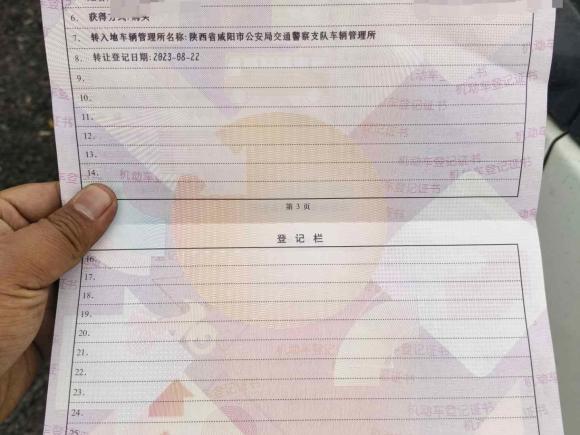 6. 获得方式: 购买
7. 转入地车辆管理所名称: 陕西省咸阳市公安局交通警察支队车辆管理所
8. 转让登记日期: 2023-08-22
9.
10.
11.
12.
13.
14.
第 3 页
登 记 栏
16.
17.
18.
19.
20.
21.
22.
23.
24.
25.
机动车登记证书